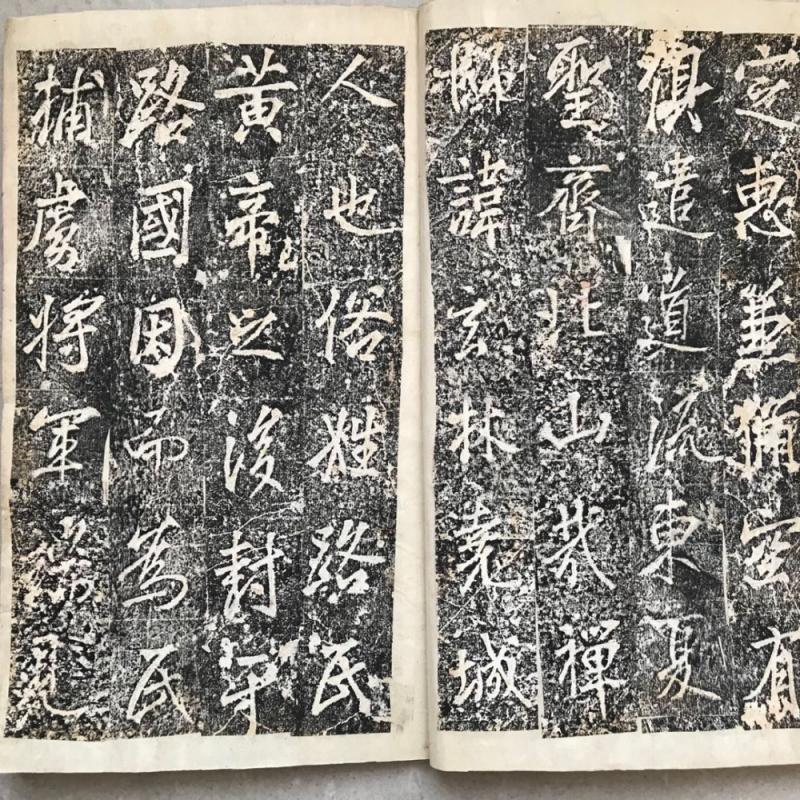 定惠兼脩空有
頓遣道流東夏
聖齊北山哉禪
師諱玄林堯城
人也俗姓路氏
黄帝之後封于
路國因而為氏
捕虜將軍見